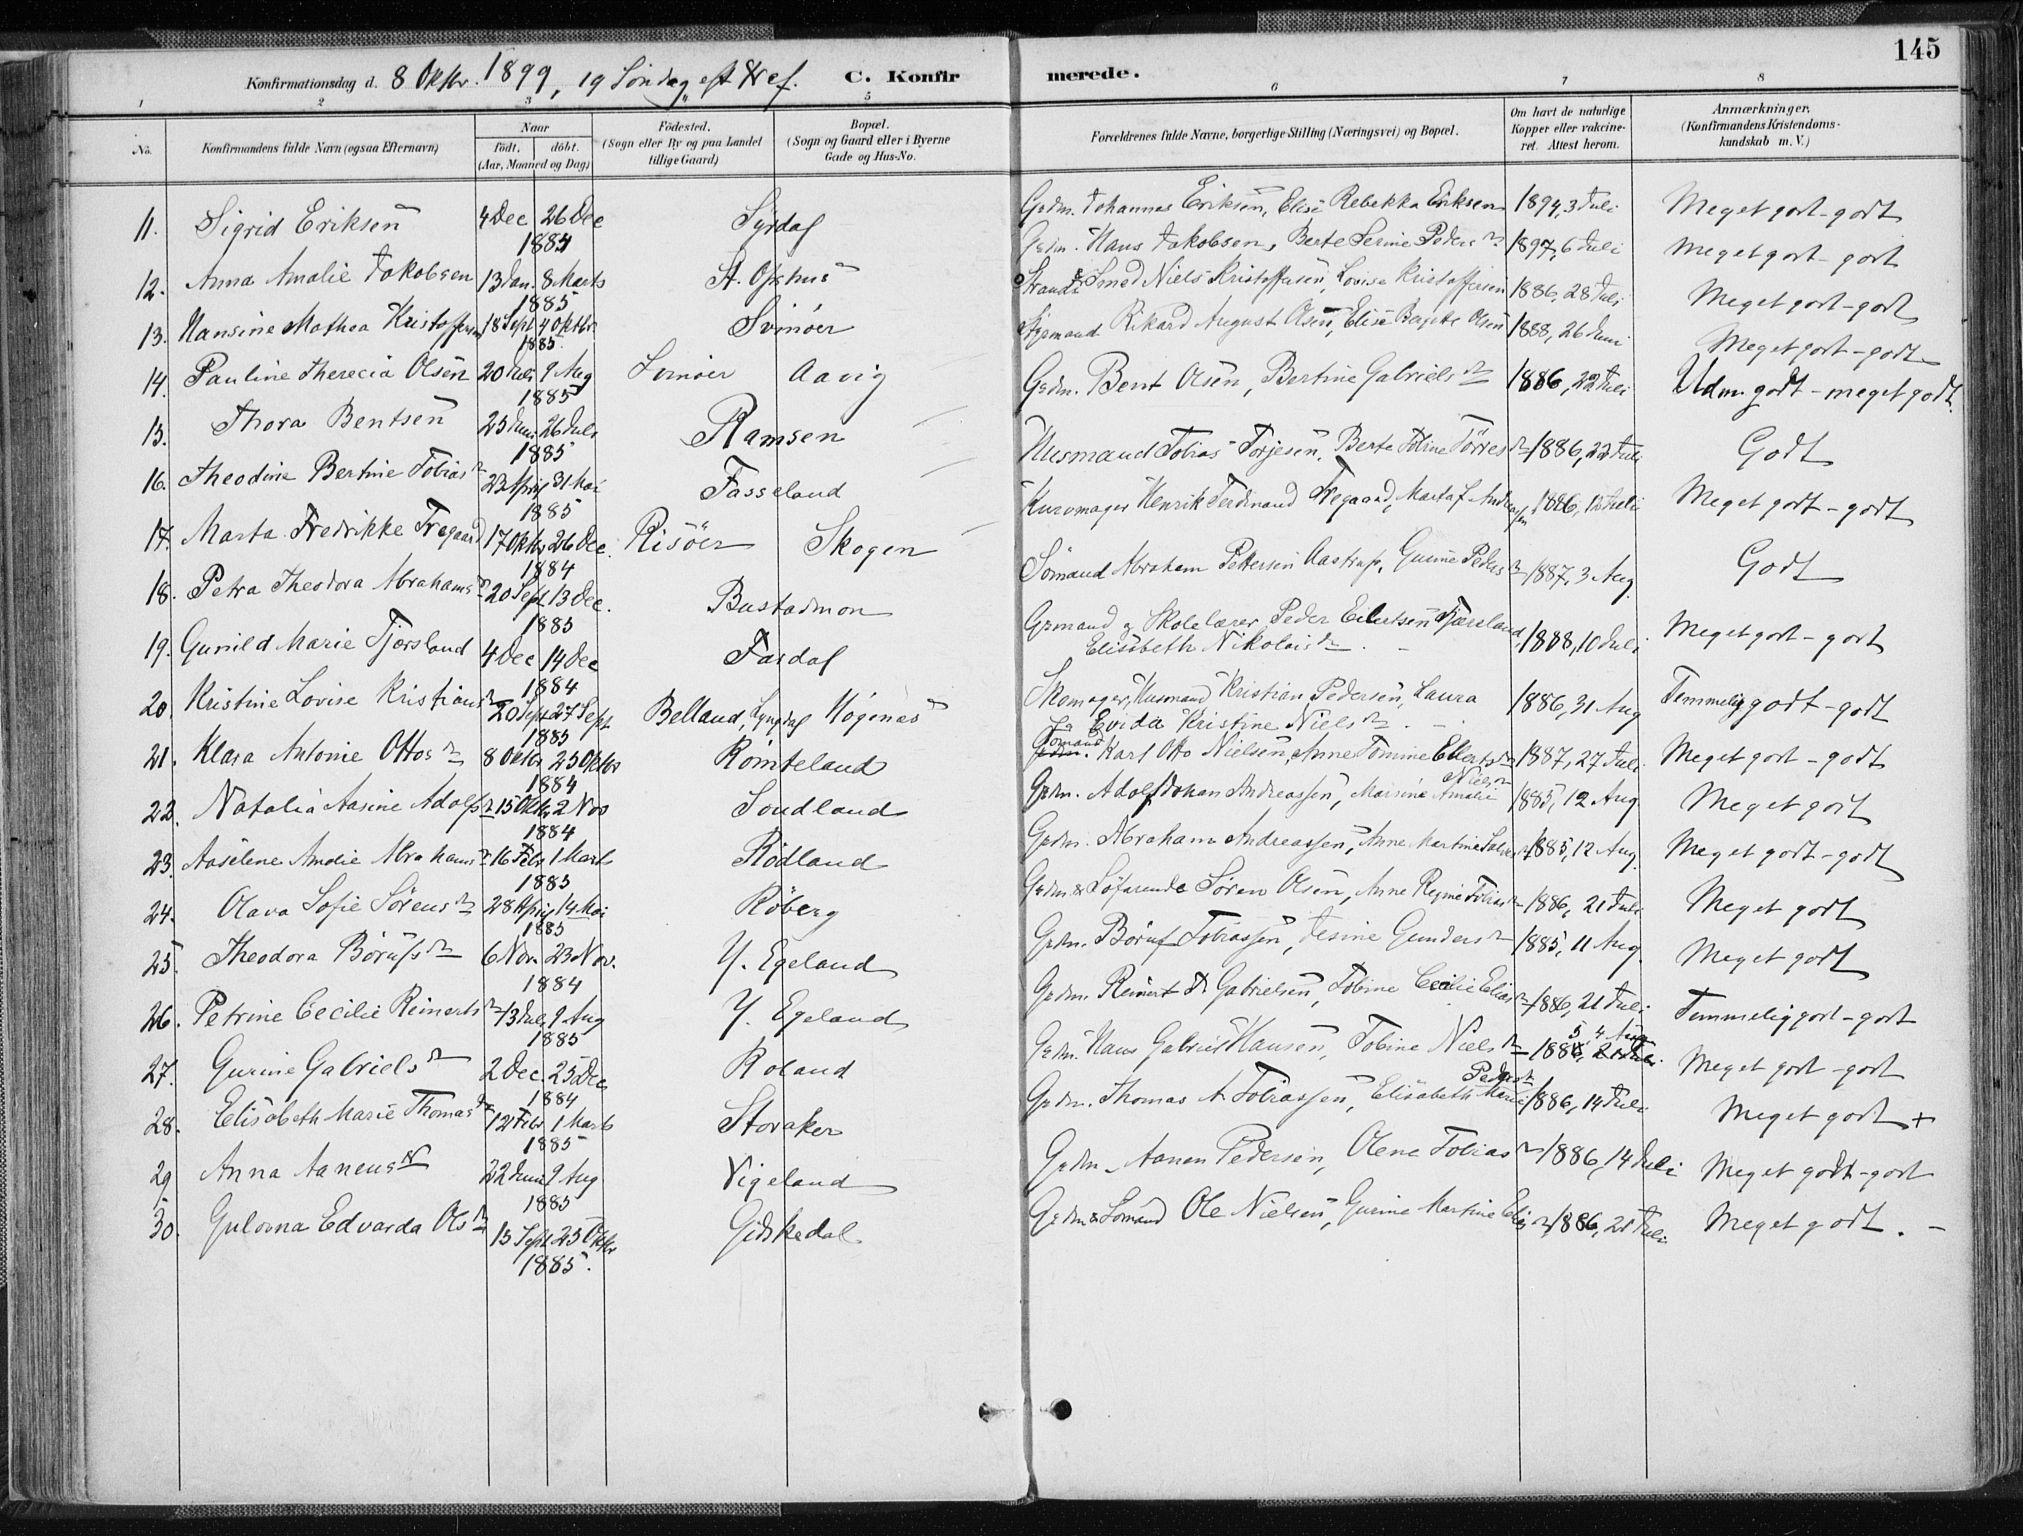 145
Konfirmationsdag d. 8 Oktbr. 1899, 19 Söndag eft Tref. C. Konfirmerede.
1 2 3 5 6 7 8
No.
Konfirmandens fulde Navn (ogsaa Efternavn)
Naar
födt. döbt.
(Aar, Maaned og Dag)
Födested.
(Sogn eller By og paa Landet
tillige Gaard)
Bopæl.
(Sogn og Gaard eller i Byerne
Gade og Hus-No.
Forældrenes fulde Navne, borgerlige Stilling (Næringsvei) og Bopæl.
Om havt de naturlige
Kopper eller vakcine-
ret. Attest herom.
Anmærkninger.
(Konfirmandens Kristendoms-
kundskab m. V.)
11. Sigrid Eriksen 4 Dec 26 Dec 1884 Syrdal Grdm. Johannes Eriksen, Elise Rebekka Eriksen 1894, 3 Juli Meget godt - godt
12. Anna Amalie Jakobsen 13 Jan. 8 Marts 1885 St. Ophus Grdm. Hans Jakobsen, Berte Serine Peders 1897, 6 Juli Meget godt - godt
13. Hansine Mathea Kristoffersen 18 Sept 4 Oktbr 1885 Svinöer Smed Niels Kristoffersen, Lovise Kristoffersen 1886, 28 Juli Meget godt - godt
14. Pauline Therecia Olsen 20 Juli 9 Aug 1885 Svinöer Aavig Styrmand Rikard August Olsen, Elise Olsen 1888, 26 Juni Meget godt - godt
15. Thora Bentsen 25 Juni 26 Juli 1885 Ramsen Grdm. Bent Olsen, Bertine Gabriels 1886, 22 Juli Udm. godt - meget godt.
16. Theodine Bertine Tobias 22 April 31 Mai 1885 Fasseland Husmand Tobias Torjesen, Berte Tobine Törres 1886, 22 Juli Godt
17. Marta Fredrikke Fregaard 17 Oktbr 26 Dec. 1884 Risöer Skogen Kurvmager Henrik Ferdinand Fregaard, Marta F. Andreassen 1886, Juli Meget godt - godt
18. Petra Theodora Abrahams 20 Sept 13 Dec. 1885 Bustadmon Sömand Abraham Pettersen Aastrup, Gurine Peders 1887, 3 Aug. Godt
19. Gunild Marie Tjørsland 4 Dec 14 Dec 1884 Fardal Grmand & Skolelærer Peder Eilertsen Fjæreland Elisabeth Nikolais 1888, 10 Juli Meget godt - godt
20. Kristine Lovise Kristians 20 Sept 27 Sept 1885 Belland, Lyngdal Högenes Skomager, Husmand Kristian Pedersen, Laura Evida Kristine Niels 1886, 31 Aug Temmelig godt - godt
21. Klara Antonie Ottos 8 Oktbr 25 Oktbr 1884 Römteland Grdm. Sömand Karl Otto Nielsen, Anne Tomine Ellerts 1887, 27 Juli Meget godt - godt
22. Natalia Aasine Adolfs 15 Oktbr 2 Nov 1884 Soudland Grdm. Adolf Johan Andreassen, Amalie Niels 1885, 12 Aug. Meget godt
23. Aaselene Amalie Abrahams 16 Febr 1 Marts 1885 Rödland Grdm. Abraham Andreassen, Anne Martine 1885, 12 Aug. Meget godt - godt
24. Olava Sofie Sörens 28 April 14 Mai 1885 Röberg Grdm & Söfarende Sören Olsen, Anne Regine Tobias 1886, 21 Juli Meget godt
25. Theodora Börufs 6 Nov. 23 Nov. 1884 Y. Egeland Grdm. Böruf Tobiassen, Jesine Gunders 1885, 11 Aug. Meget godt
26. Petrine Cecilie Reinerts 13 Juli 9 Aug 1885 Y. Egeland Grdm. Reinert Gabrielsen, Tobine Cecilie Elias 1886, 21 Juli Temmelig godt - godt
27. Gurine Gabriels 2 Dec. 25 Dec 1884 Roland Grdm. Hans Gabriel Hansen, Tobine Niels 1885, 4 Aug 21 Juli. Meget godt - godt
28. Elisabeth Marie Thomas 12 Febr 1 Marts 1885 Storaker Grdm. Thomas A. Tobiassen, Elisabeth Marie Peders 1886, 14 Juli Meget godt +
29 Anna Aanens 22 Juni 9 Aug 1885 Vigeland Grdm. Aanen Pedersen, Olene Tobias 1886, 14 Juli Meget godt - godt
30. Gulovna Edvarda Ols 13 Sept 25 Oktbr 1885. Gidskedal Grdm & Sömand Ole Nielsen, Gurine Martine Elias 1886, 21 Juli Meget godt. -